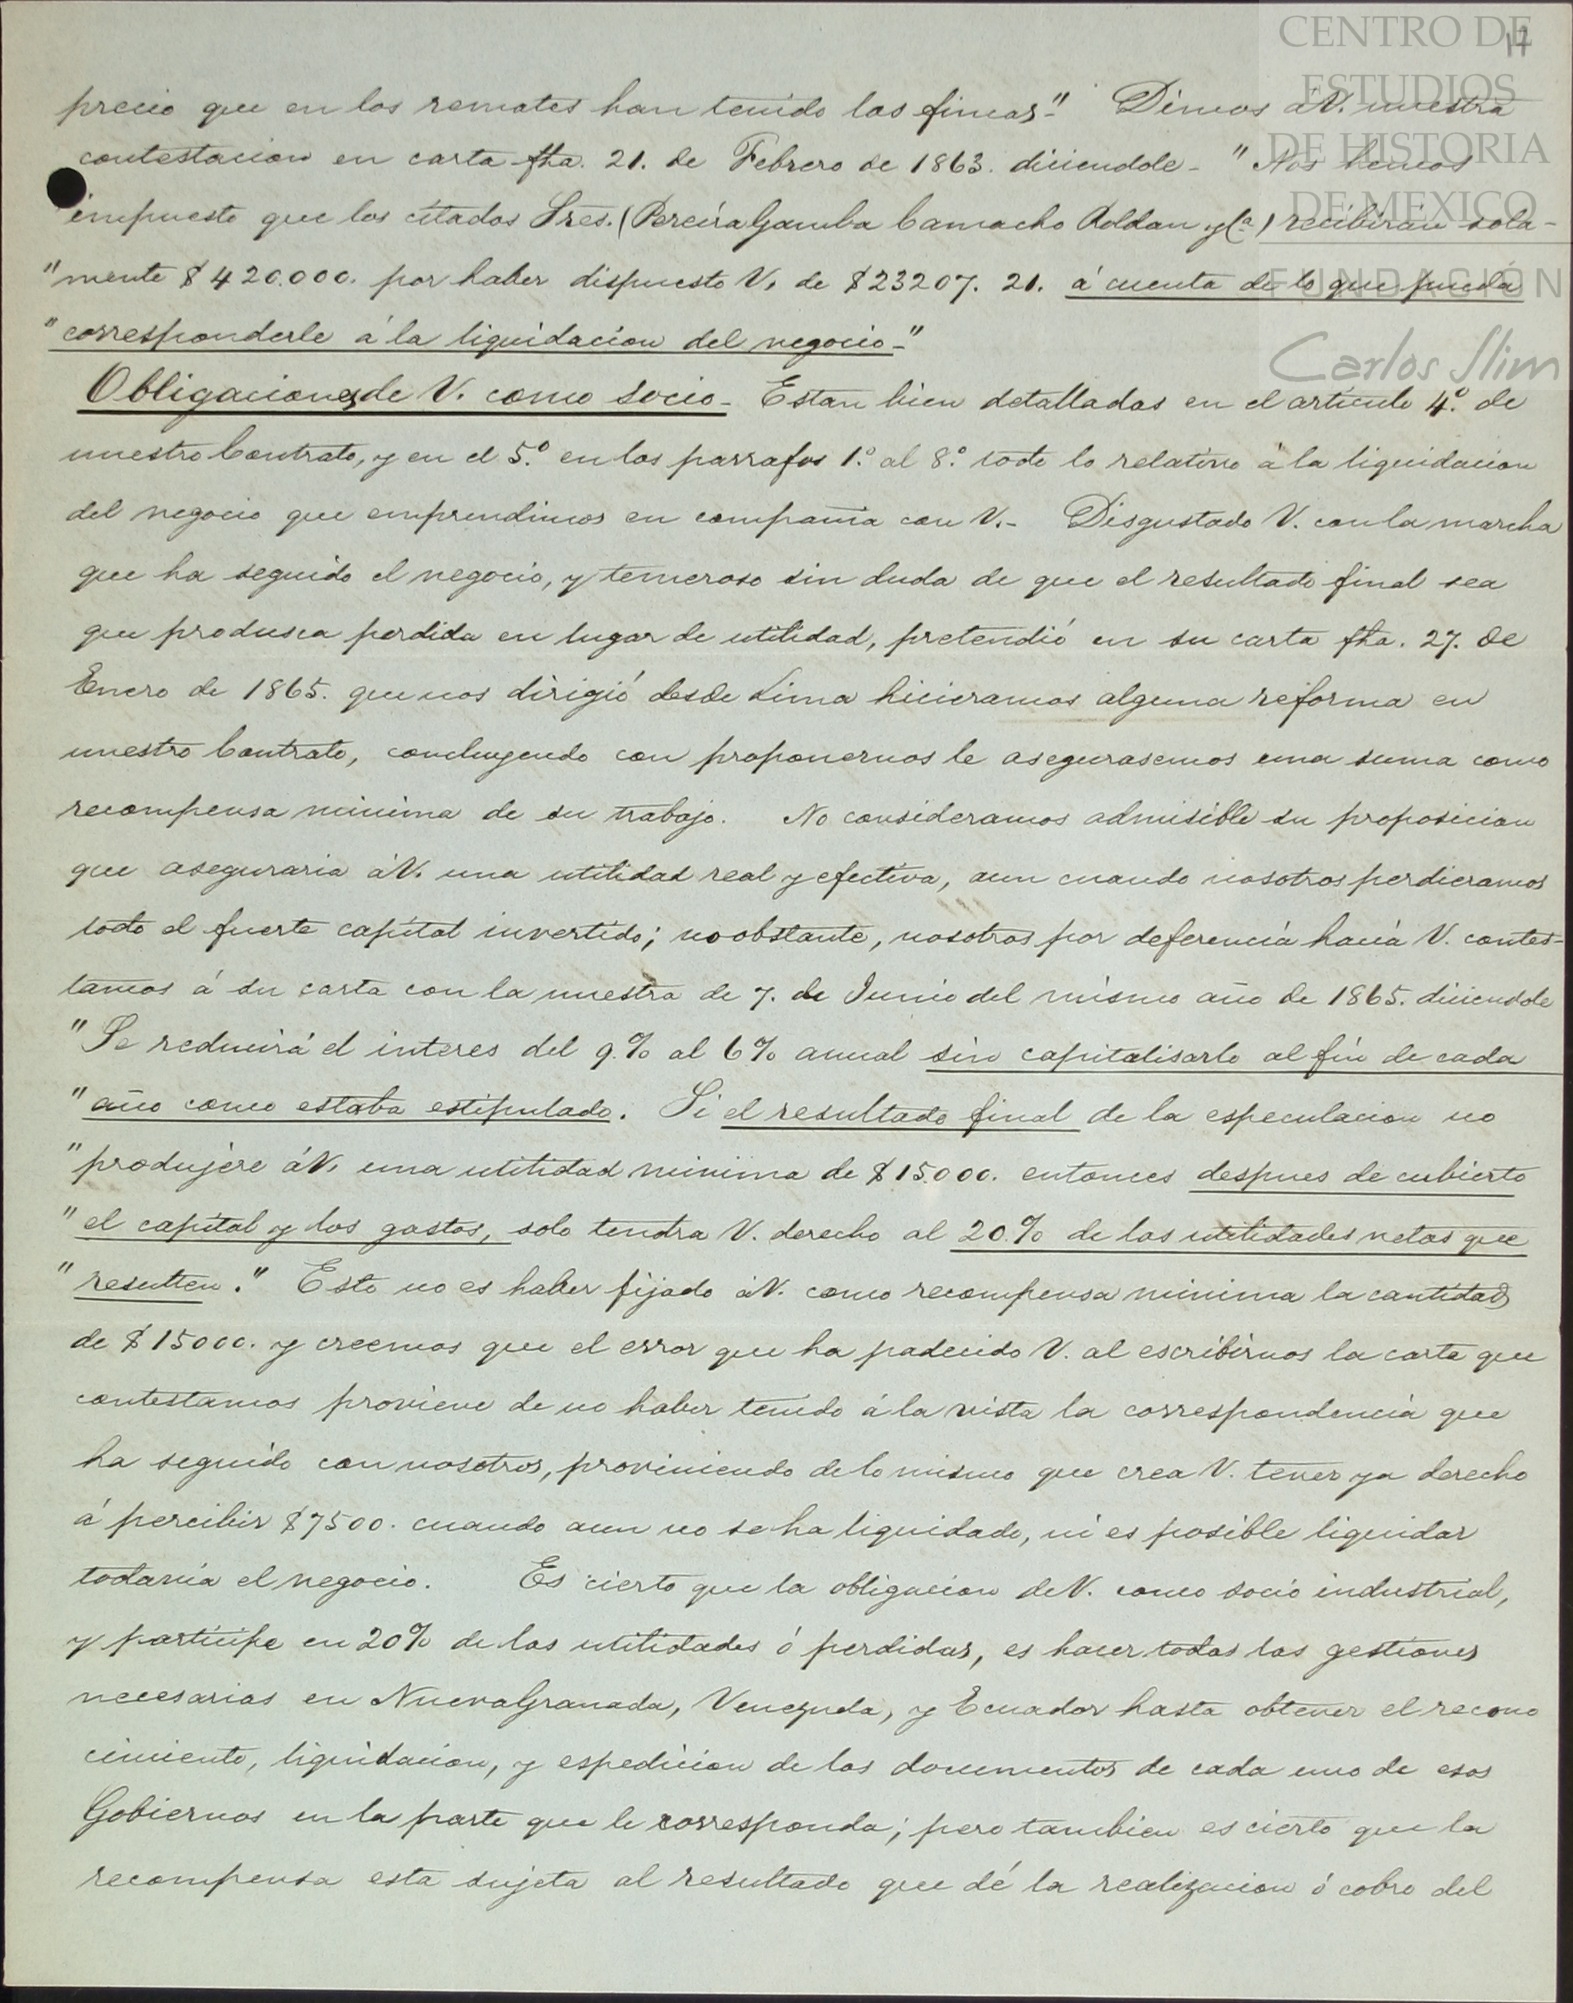 CENTRO DE
ESTUDIOS
DE HISTORIA
DE MEXICO
FUNDACIÓN
Carlos Slim
17
precio que en los remates han tenido las fincas"- Dimos á V. nuestra
contestacion en carta fha. 21. de Febrero de 1863. diciendole - "Nos hemos
"impuesto que los citados Sres. (Pereira Gamba Camacho Roldan y Ca.) recibirán sola-
"mente $420.000. por haber dispuesto V. de $23207. 21. á cuenta de lo que pueda
"corresponderle á la liquidacion del negocio-"
Obligaciones de V. como socio- Estan bien detalladas en el articulo 4º. de
nuestro Contrato, y en el 5º. en los parrafos 1º. al 8º. todo lo relativo á la liquidacion
del negocio que emprendimos en compañia con V.- Disgustado V. con la marcha
que ha seguido el negocio, y temeroso sin duda de que el resultado final sea
que produsca perdida en lugar de utilidad, pretendió en su carta fha. 27. de
Enero de 1865. que nos dirigió desde Lima hicieramos alguna reforma en
nuestro Contrato, concluyendo con proponernos le asegurasemos una suma como
recompensa minima de su trabajo. No consideramos admisible su proposicion
que aseguraria á V. una utilidad real y efectiva, aun cuando nosotros perdieramos
todo el fuerte capital invertido; no obstante, nosotros por deferencia hacia V. contes-
tamos á su carta con la nuestra de 7. de Junio del mismo año de 1865. diciendole
"Se reducirá el interes del 9.% al 6% anual sin capitalisarlo al fin de cada
"año como estaba estipulado. Si el resultado final de la especulacion no
"produjere á V. una utilidad minima de $15000. entonces despues de cubierto
"el capital y los gastos, solo tendra V. derecho al 20.% de las utilidades netas que
"resulten." Esto no es haber fijado á V. como recompensa minima la cantidad
de $15000. y creemos que el error que ha padecido V. al escribirnos la carta que
contestamos proviene de no haber tenido á la vista la correspondencia que
ha seguido con nosotros, proviniendo de lo mismo que crea V. tener ya derecho
á percibir $7500. cuando aun no se ha liquidado, ni es posible liquidar
todavia el negocio. Es cierto que la obligacion de V. como socio industrial,
y participe en 20% de las utilidades ó perdidas, es hacer todas las gestiones
necesarias en Nueva Granada, Venezuela, y Ecuador hasta obtener el recono
cimiento, liquidacion, y espedicion de los documentos de cada uno de esos
Gobiernos en la parte que le corresponda; pero tambien es cierto que la
recompensa esta sujeta al resultado que dé la realizacion ó cobro del